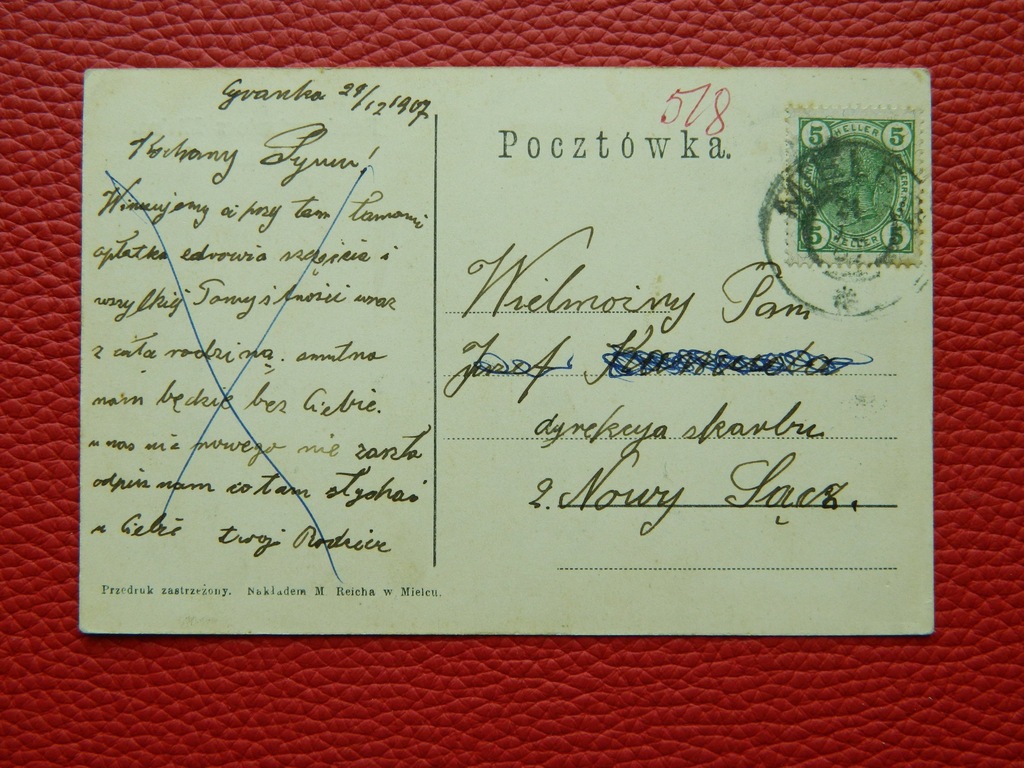 29/12 1907
Kochany Synu!
Winszujemy ci przy tem łamaniu
opłatka zdrowia szczęścia i
wszylkiej Pomyślności wraz
z cała rodziną. smutno
nam będzie bez Ciebie.
u nas nic nowego nie zaszło
odpisz nam co tam słychać
u Ciebie twoji Rodzice
Przedruk zastrzeżony. Nakładem M Reicha w Mielcu.
Pocztówka.
518
5 HELLER 5
5 HELLER 5
MIEL
Wielmożny Pan
Józef
dyrekcyja skarbu
2. Nowy Sącz.